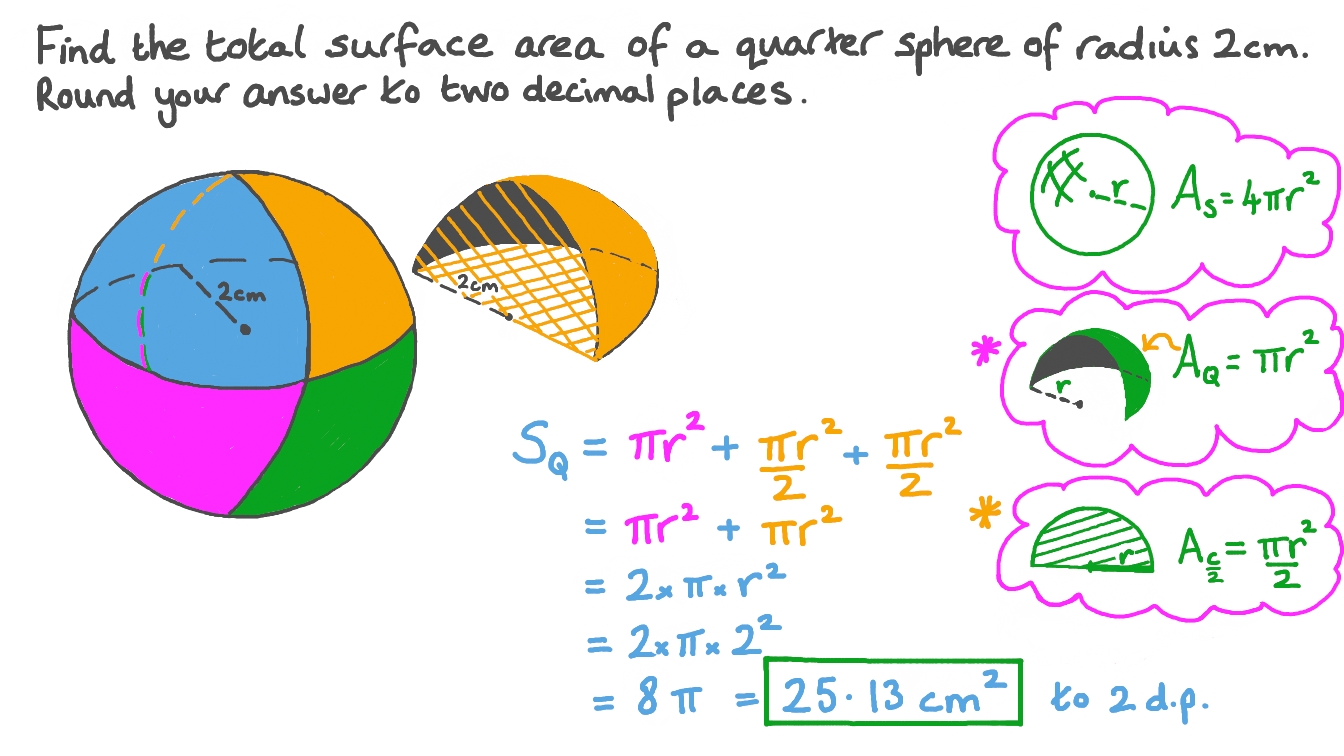 Find the total surface area of a quarter sphere of radius 2cm.
Round your answer to two decimal places.
2cm
2cm
r
A_S = 4πr²
* r
A_Q = πr²
* r
A_{c/2} = πr²/2
S_Q = πr² + πr²/2 + πr²/2
= πr² + πr²
= 2 × π × r²
= 2 × π × 2²
= 8π = 25·13 cm² to 2 d.p.